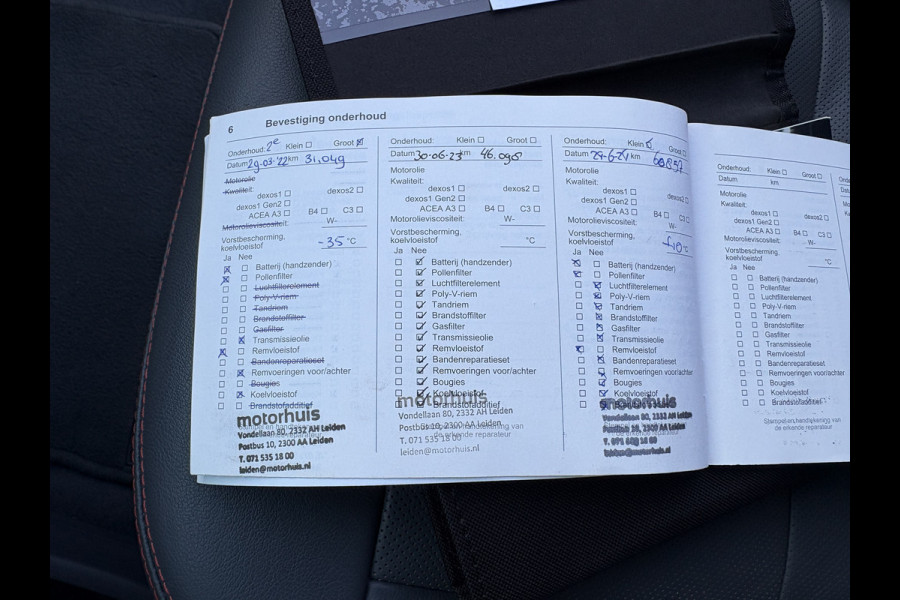 6 Bevestiging onderhoud
Onderhoud: 2e Klein Groot
Datum 29-03-'22 km 31.049
Motorolie
Kwaliteit:
dexos1 dexos2
dexos1 Gen2
ACEA A3 B4 C3
Motorolieviscositeit: W-
Vorstbescherming,
koelvloeistof -35 °C
Ja Nee
Batterij (handzender)
Pollenfilter
Luchtfilterelement
Poly-V-riem
Tandriem
Brandstoffilter
Gasfilter
Transmissieolie
Remvloeistof
Bandenreparatieset
Remvoeringen voor/achter
Bougies
Koelvloeistof
Brandstofadditief
motorhuis
Vondellaan 80, 2332 AH Leiden
Postbus 10, 2300 AA Leiden
T. 071 535 18 00
leiden@motorhuis.nl
Onderhoud: Klein Groot
Datum 30-06-23 km 46.096
Motorolie
Kwaliteit:
dexos1 dexos2
dexos1 Gen2
ACEA A3 B4 C3
Motorolieviscositeit: W-
Vorstbescherming,
koelvloeistof °C
Ja Nee
Batterij (handzender)
Pollenfilter
Luchtfilterelement
Poly-V-riem
Tandriem
Brandstoffilter
Gasfilter
Transmissieolie
Remvloeistof
Bandenreparatieset
Remvoeringen voor/achter
Bougies
Koelvloeistof
Brandstofadditief
motorhuis
Vondellaan 80, 2332 AH Leiden
Postbus 10, 2300 AA Leiden
de erkende reparateur
T. 071 535 18 00
leiden@motorhuis.nl
Onderhoud: Klein Groot
Datum km 60.857
Motorolie
Kwaliteit:
dexos1 dexos2
dexos1 Gen2
ACEA A3 B4 C3
Motorolieviscositeit: W-
Vorstbescherming,
koelvloeistof °C
Ja Nee
Batterij (handzender)
Pollenfilter
Luchtfilterelement
Poly-V-riem
Tandriem
Brandstoffilter
Gasfilter
Transmissieolie
Remvloeistof
Bandenreparatieset
Remvoeringen voor/achter
Bougies
Koelvloeistof
motorhuis
Vondellaan 80, 2332 AH Leiden
Postbus 10, 2300 AA Leiden
T. 071 535 18 00
leiden@motorhuis.nl
Onderhoud: Klein Groot
Datum km
Motorolie
Kwaliteit:
dexos1 dexos2
dexos1 Gen2
ACEA A3 B4 C3
Motorolieviscositeit: W-
Vorstbescherming,
koelvloeistof °C
Ja Nee
Batterij (handzender)
Pollenfilter
Luchtfilterelement
Poly-V-riem
Tandriem
Brandstoffilter
Gasfilter
Transmissieolie
Remvloeistof
Bandenreparatieset
Remvoeringen voor/achter
Bougies
Koelvloeistof
Brandstofadditief
Stempel en handtekening van
de erkende reparateur